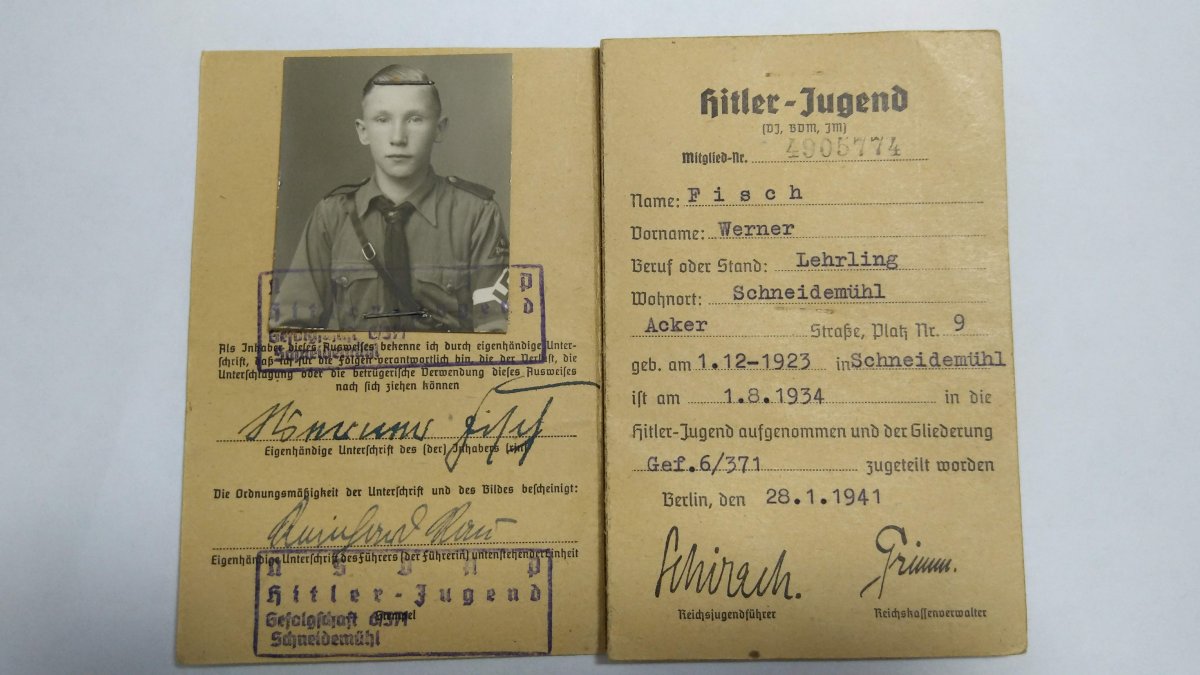 N S D A P
Hitler-Jugend
Gefolgschaft 6/371
Schneidemühl
Als Inhaber dieses Ausweises bekenne ich durch eigenhändige Unter-
schrift, daß ich für die Folgen verantwortlich bin, die der Verlust, die
Unterschlagung oder die betrügerische Verwendung dieses Ausweises
nach sich ziehen können
Werner Fisch
Eigenhändige Unterschrift des (der) Inhabers (rin)
Die Ordnungsmäßigkeit der Unterschrift und des Bildes bescheinigt:
Reinhard
Eigenhändige Unterschrift des Führers (der Führerin) untenstehender Einheit
N S D A P
Hitler-Jugend
Gefolgschaft 6/371
Stempel
Schneidemühl
Hitler-Jugend
(DJ, BDM, JM)
Mitglied-Nr. 4905774
Name: Fisch
Vorname: Werner
Beruf oder Stand: Lehrling
Wohnort: Schneidemühl
Acker Straße, Platz Nr. 9
geb. am 1.12-1923 in Schneidemühl
ist am 1.8.1934 in die
Hitler-Jugend aufgenommen und der Gliederung
Gef.6/371 zugeteilt worden
Berlin, den 28.1.1941
Schirach. Grimm.
Reichsjugendführer Reichskassenverwalter